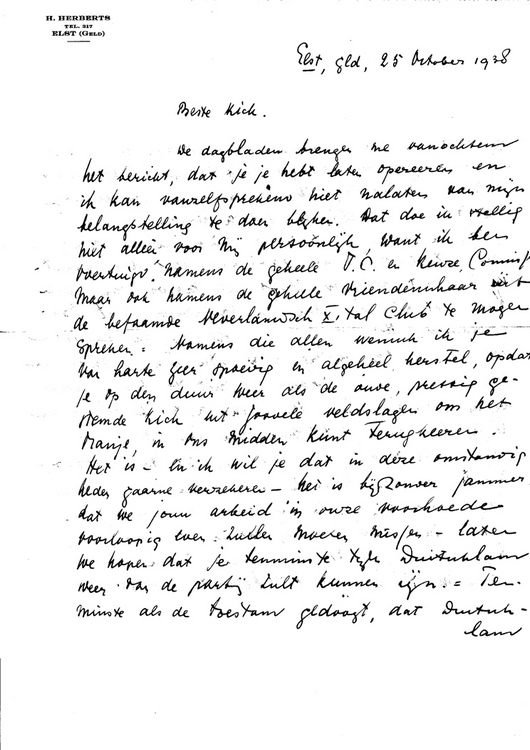 H. HERBERTS
TEL. 317
ELST (GELD)
Elst, gld, 25 October 1938
Beste Kick.
De dagbladen brengen me vanochtend
het bericht, dat je je hebt laten opereeren en
ik kan vanzelfsprekend niet nalaten van mijn
belangstelling te doen blijken. Dat doe ik stellig
niet alleen voor mij persoonlijk, want ik ben
overtuigd namens de geheele T.C. en Keuze Commissie
maar ook namens de geheele vriendenschaar uit
de befaamde Nederlandsch XI, tal club te mogen
spreken. Namens die allen wensch ik je
van harte zeer spoedig en algeheel herstel, opdat
je op den duur weer als de oude, prettig ge-
stemde Kick uit zoovele veldslagen om het
Oranje, in ons midden kunt terugkeeren.
Het is – en ik wil je dat in deze omstandig
heden gaarne verzekeren – het is bijzonder jammer
dat we jouw arbeid in onze voorhoede
voorloopig even zullen moeten missen – laten
we hopen dat je tenminste tegen Duitschland
weer van de partij zult kunnen zijn. = Ten-
minste als de toestand gedoogt, dat Duitsch-
land